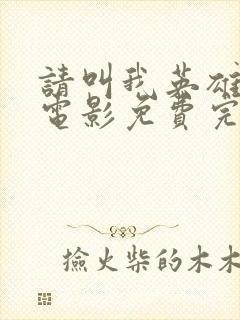 請叫我英雄
電影免費完
撿火柴的木木